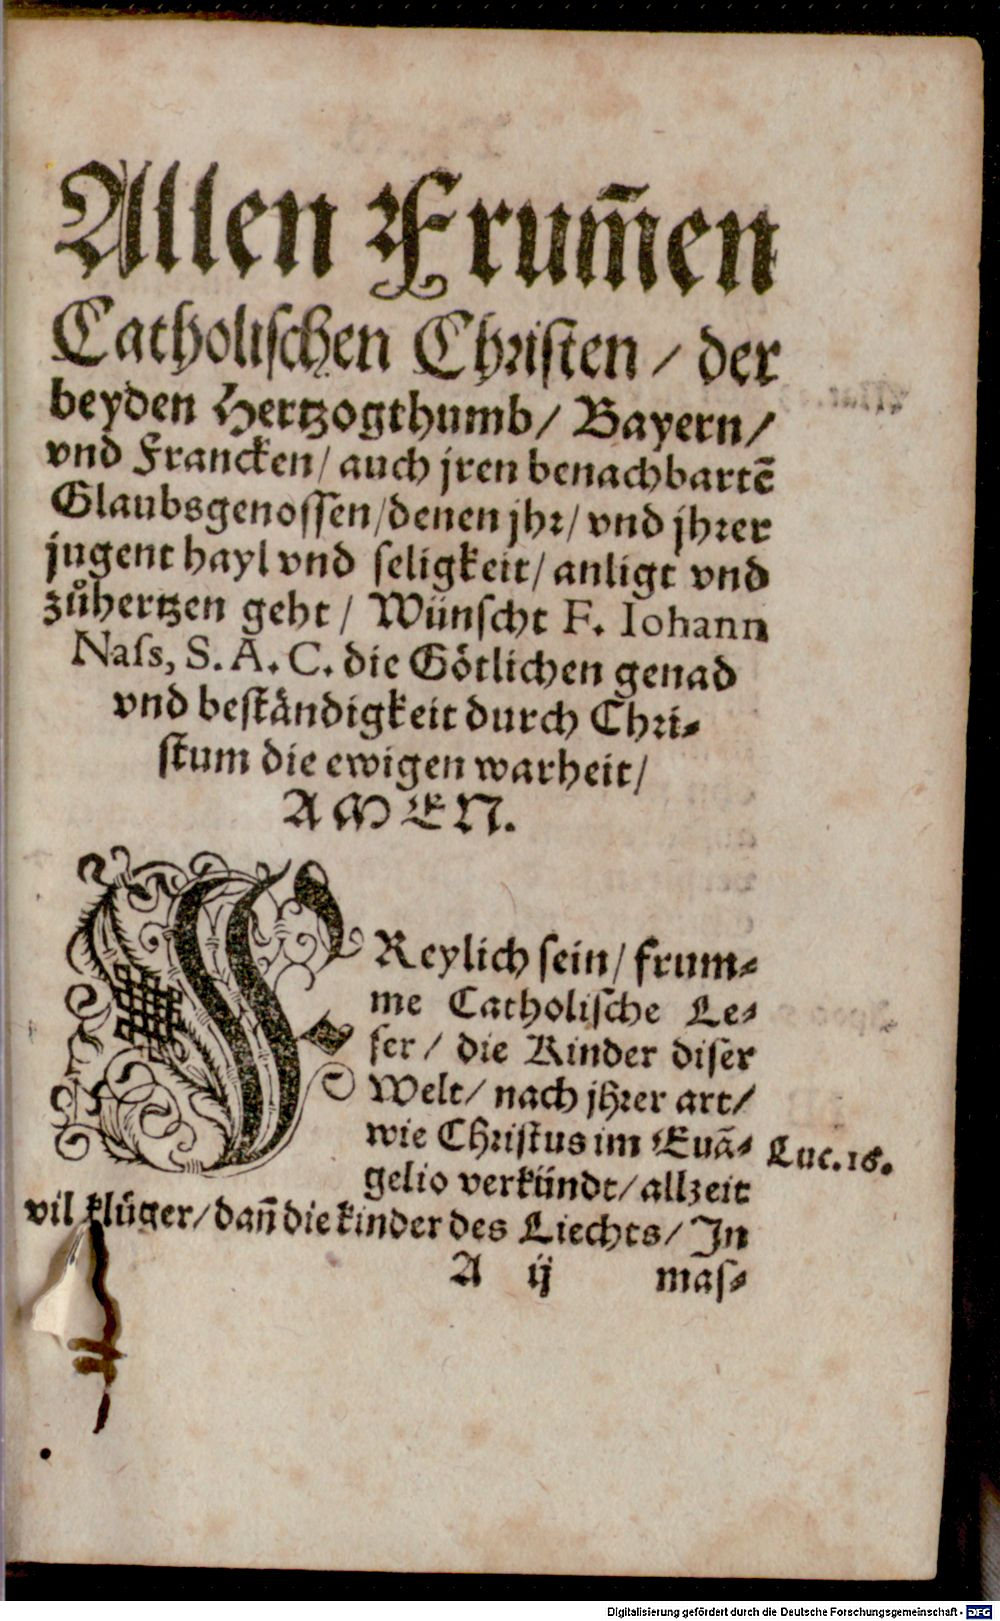 Allen Frum̃en
Catholischen Christen / der
beyden Hertzogthumb / Bayern /
vnd Francken / auch jren benachbartẽ
Glaubsgenossen / denen jhr / vnd jhrer
jugent hayl vnd seligkeit / anligt vnd
zůhertzen geht / Wünscht F. Iohann
Nass, S. A. C. die Götlichen genad
vnd beständigkeit durch Chri-
stum die ewigen warheit /
AMEN.
FReylich sein / frum-
me Catholische Le-
ser / die Kinder diser
Welt / nach jhrer art /
wie Christus im Euã-
gelio verkündt / allzeit
Luc. 16.
vil klüger / dañ die kinder des Liechts / In
A ij mas-
Digitalisierung gefördert durch die Deutsche Forschungsgemeinschaft - DFG